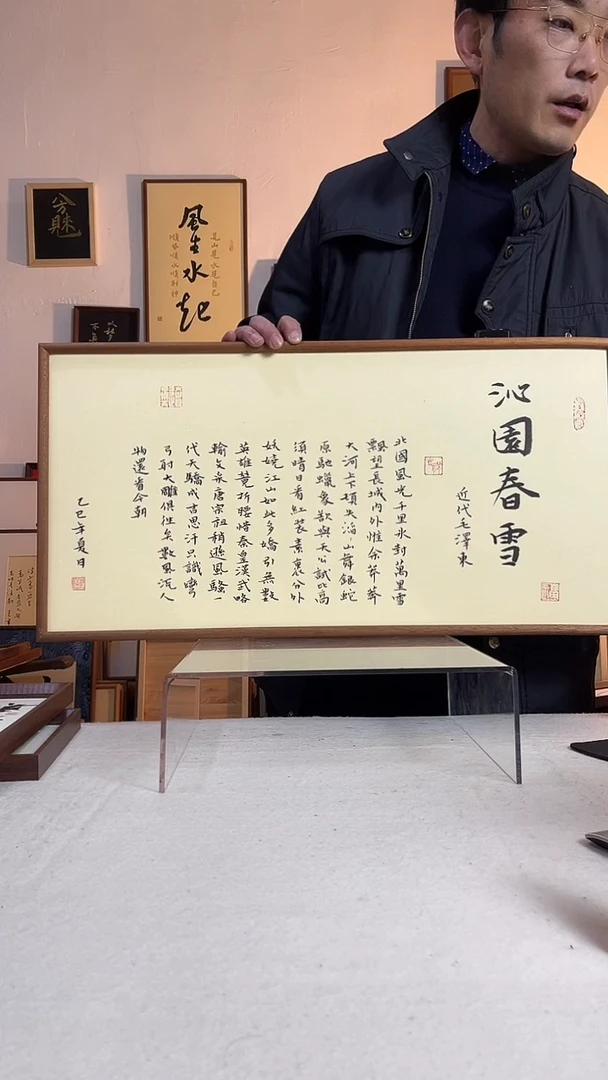 沁園春雪
近代毛澤東
北國風光千里氷封萬里雪
飄望長城內外惟余莽莽
大河上下頓失滔山舞銀蛇
原馳蠟象欲與天公試比高
須晴日看紅裝素裹分外
妖嬈江山如此多嬌引無數
英雄競折腰惜秦皇漢武略
輸文采唐宗祖稍遜風騷一
代天驕成吉思汗只識彎
弓射大雕俱往矣數風流人
物還看今朝
乙巳年夏日
風生水起
是山是水是自己
順風順水順財神